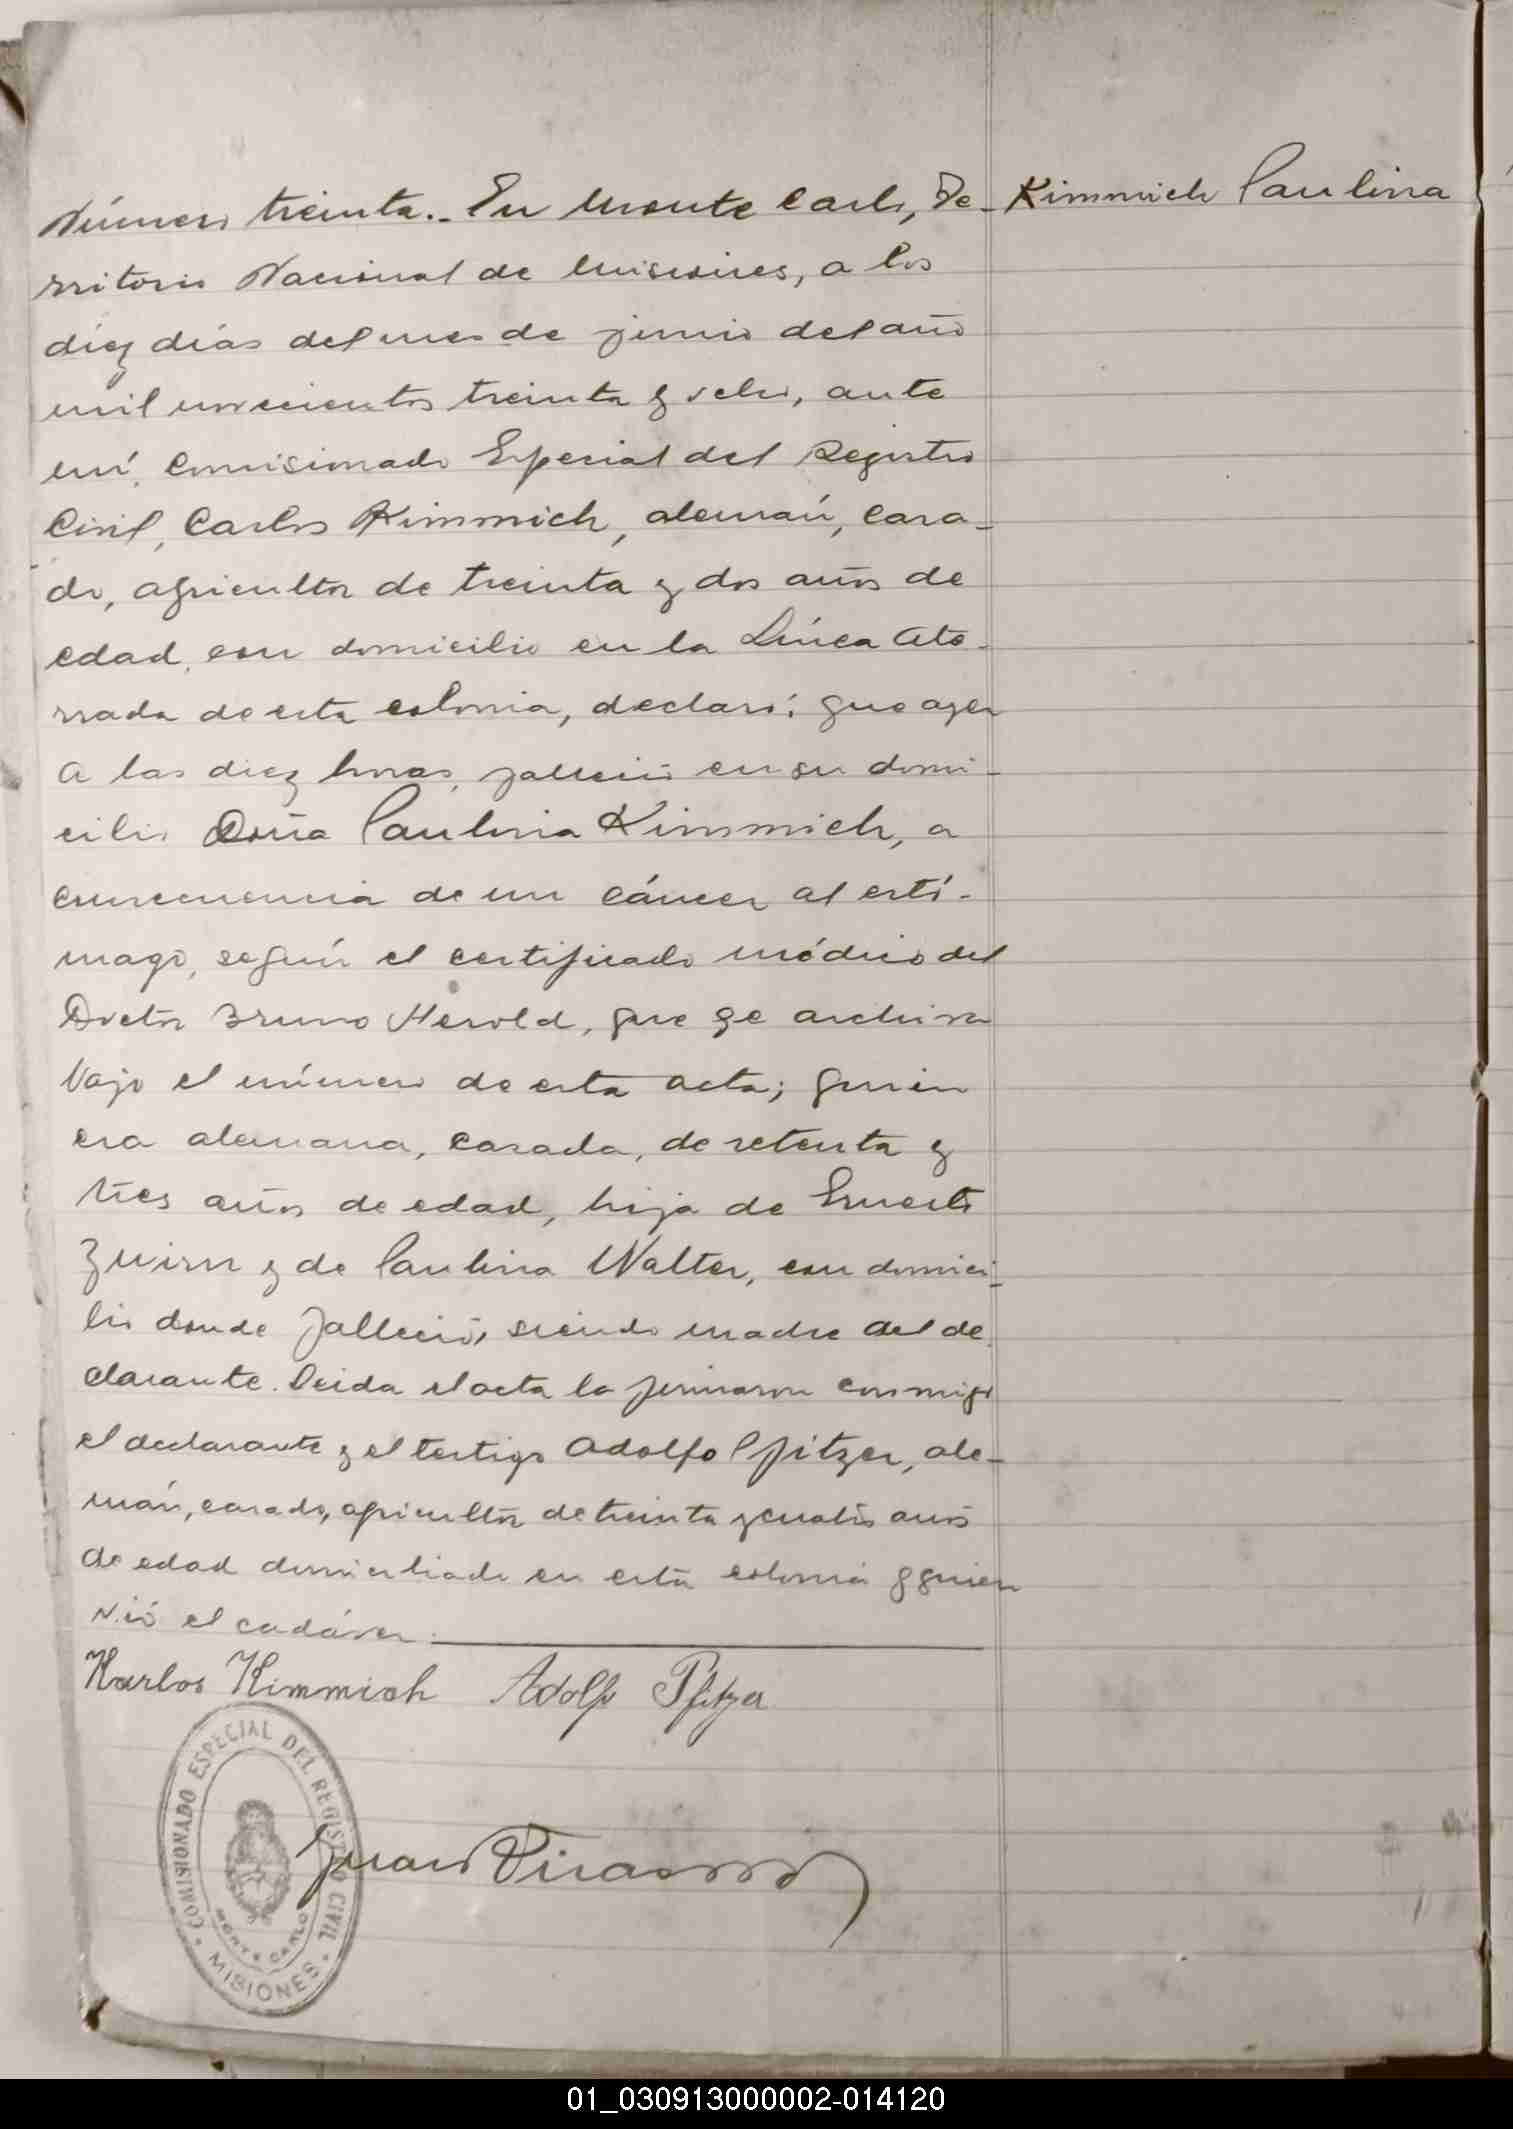 Número treinta.- En Monte Carlo, Te- Kimmich Paulina
rritorio Nacional de Misiones, a los
diez días del mes de junio del año
mil novecientos treinta y ocho, ante
mí, Comisionado Especial del Registro
Civil, Carlos Kimmich, alemán, casa-
do, agricultor de treinta y dos años de
edad, con domicilio en la Línea
de esta colonia, declaró: que ayer
a las diez horas, falleció en su domi-
cilio Doña Paulina Kimmich, a
consecuencia de un cáncer al estó-
mago, según el certificado médico del
Doctor Bruno Herold, que se archiva
bajo el número de esta acta; quien
era alemana, casada, de setenta y
tres años de edad, hija de Ernesto
y de Paulina Walter, con domici-
lio donde falleció, siendo madre del de
clarante. Leida el acta la firmaron conmigo
el declarante y el testigo Adolfo Pfitzer, ale-
mán, casado, agricultor de treinta y cuatro años
de edad domiciliado en esta colonia y quien
vió el cadáver.
Karlos Kimmich Adolf Pfitzer
COMISIONADO ESPECIAL DEL REGISTRO CIVIL
MONTE CARLO
MISIONES
Juan
01_030913000002-014120